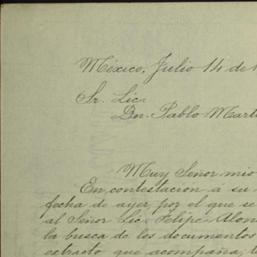 México, Julio 14 de
Sr. Lic.
Don Pablo
Muy Señor mio
En contestacion a su
fecha de ayer por el que se
al Señor Lic. Felipe
la busca de los documentos
extracto que acompaña,